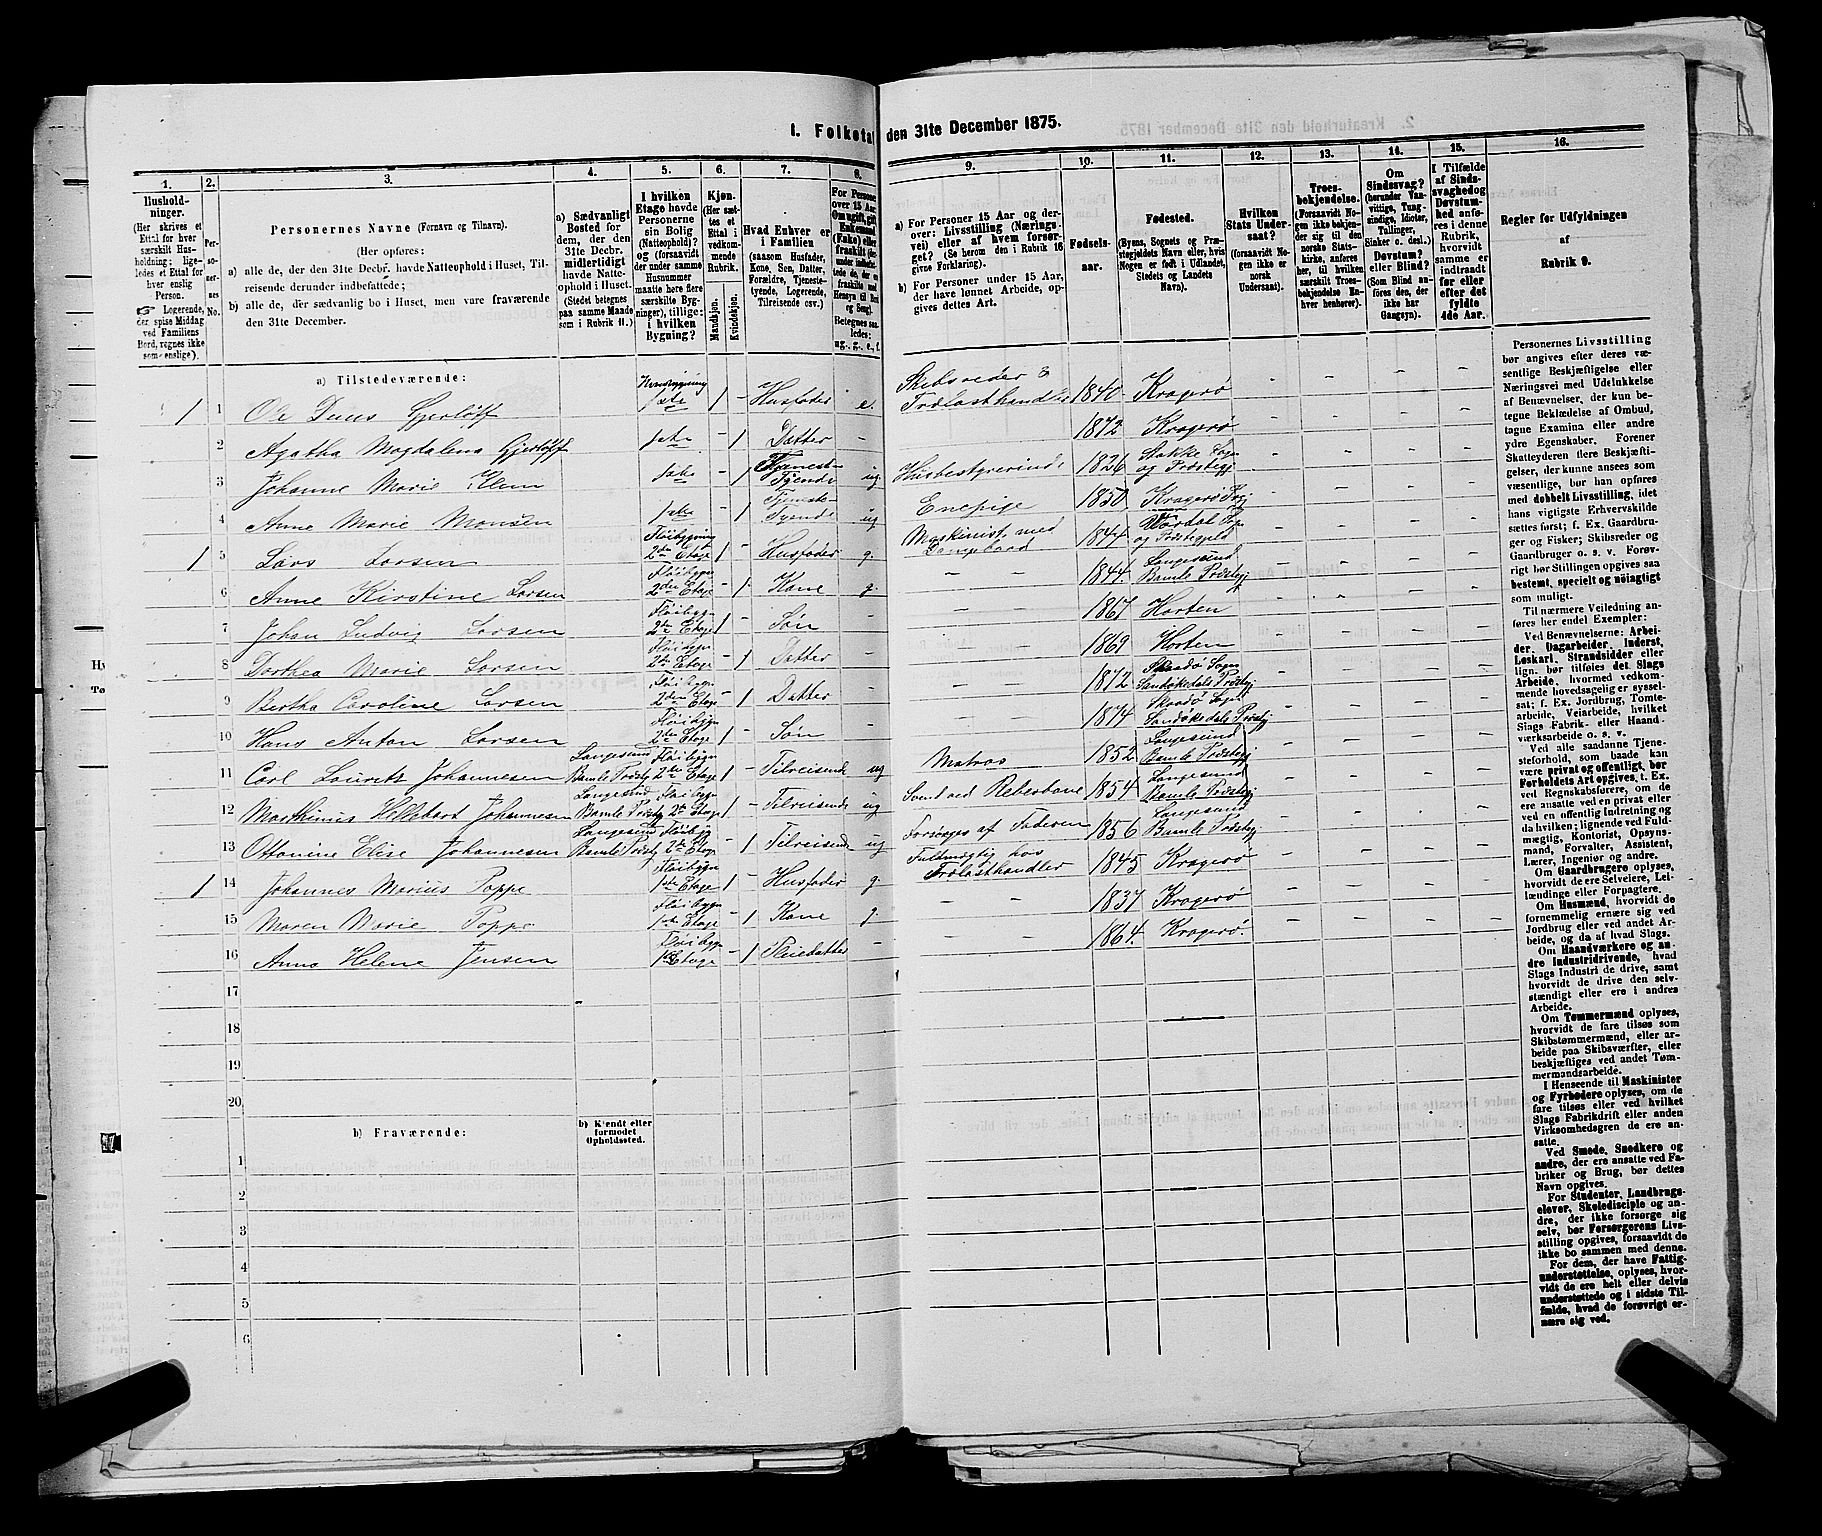 I. Folketal den 31te December 1875.
1. 2. 3. 4. 5. 6. 7. 8. 9. 10. 11. 12. 13. 14. 15. 16.
Hushold-
ninger.
(Her skrives et
Ettal for hver
særskilt Hus-
holdning; lige-
ledes et Ettal for
hver enslig
Person.
☞ Logerende,
der spise Middag
ved Familiens
Bord, regnes ikke
som enslige).
Per-
soner-
nes
No.
Personernes Navne (Fornavn og Tilnavn).
(Her opføres:
a) alle de, der den 31te Decbr. havde Natteophold i Huset, Til-
reisende derunder indbefattede;
b) alle de, der sædvanlig bo i Huset, men vare fraværende
den 31te December.
a) Sædvanligt
Bosted for
dem, der den
31te Decbr.
midlertidigt
havde Natte-
ophold i Huset.
(Stedet betegnes
paa samme Maade
som i Rubrik 11.)
I hvilken
Etage havde
Personerne
sin Bolig
(Natteophold)?
og (forsaavidt
der under samme
Husnummer
maatte høre flere
særskilte Byg-
ninger), tillige:
i hvilken
Bygning?
Kjøn.
(Her sæt-
tes et
Ettal i
vedkom-
mende
Rubrik.
Mandkjøn.
Kvindekjøn.
Hvad Enhver er
i Familien
(saasom Husfader,
Kone, Søn, Datter,
Forældre, Tjeneste-
tyende, Logerende,
Tilreisende osv.)
For Personer
over 15 Aar:
Om ugift, gift,
Enkemand
(Enke) eller
fraskilt
Betegnes saa-
ledes:
ug., g., e., f.
a) For Personer 15 Aar og der-
over: Livsstilling (Nærings-
vei) eller af hvem forsør-
get? (Se herom den i Rubrik 16
givne Forklaring).
b) For Personer under 15 Aar,
der have lønnet Arbeide, op-
gives dettes Art.
Fødsels-
aar.
Fødested.
(Byens, Sognets og Præ-
stegjeldets Navn eller, hvis
Nogen er født i Udlandet,
Stedets og Landets
Navn).
Hvilken
Stats Under-
saat?
(forsaavidt No-
gen ikke er
norsk
Undersaat).
Troes-
bekjendelse.
(Forsaavidt No-
gen ikke bekjen-
der sig til den
norske Stats-
kirke, anføres
her, til hvilken
særskilt Troes-
bekjendelse En-
hver henhører).
Om
Sindssvag?
(herunder Van-
vittige, Tung-
sindige, Idioter,
Tullinger,
Sinker o. desl.)
Døvstum?
eller Blind?
(Som Blind an-
føres den, der
ikke har
Gangsyn).
I Tilfælde
af Sinds-
svaghed og
Døvstum-
hed anfø-
res i denne
Rubrik,
hvorvidt
samme er
indtraadt
før eller
efter det
fyldte
4de Aar.
Regler for Udfyldningen
af
Rubrik 9.
a) Tilstedeværende:
1 1 Ole Duus Gjerløff 1ste 1 - Husfader e. Skibsreder & Trælasthandler 1840 Kragerø - - - -
2 Agatha Magdalena Gjerløff 1ste - 1 Datter - 1872 Kragerø - - - -
3 Johanne Marie 1ste - 1 Tjeneste Tjende ug. Husbestyrerinde 1826 Sogn og Præstegj - - - -
4 Anne Marie Monsen 1ste - 1 Tjeneste Tyende ug Enepige 1850 Kragerø - - - -
1 5 Lars Larsen Fløibygning 2den Etage 1 - Husfader g. Maskinist med 1844 og Præstegjeld - - - -
6 Anne Kirstine Larsen Fløibygn 2den Etage - 1 Kone g. - - 1844. Langesund Bamle Præstegj - - - -
7 Johan Ludvig Larsen Fløibygn 2de Etage 1 - Søn - - - 1867 Horten - - - -
8 Dorthea Marie Larsen Fløibygn 2de Etage - 1 Datter - - - 1869 Horten - - - -
9 Bertha Caroline Larsen Fløibygn 2den Etage - 1 Datter - - - 1872 Skaadø Sogn Sandøkedals Præstegj - - - -
10 Hans Anton Larsen Fløibygn 2den Etage 1 - Søn - - - 1874 Skaadø Sogn Sandøkedals Præstegj - - - -
11 Carl Laurits Johannesen Langesund Bamle Præstgj Fløibygn 2de Etage 1 - Tilreisende ug Matros 1852 Langesund Bamle Præstegj - - - -
12 Mathinius Hellebart Johannesen Langesund Bamle Præstgj Fløibygn 2de Etage 1 - Tilreisende ug Svend ved Reberbane 1854 Langesund Bamle Præstegj - - - -
13 Ottomine Elise Johannesen Langesund Bamle Præstgj Fløibygn 2de Etage - 1 Tilreisende ug Forsørges af Faderen 1856 Langesund Bamle Præstegj - - - -
1 14 Johannes Marius Poppe Fløibygn 1ste Etage 1 - Husfader g. Fuldmægtig hos Trælasthandler 1845 Kragerø - - - -
15 Maren Marie Poppe Fløibygn 1ste Etage - 1 Kone g. - - 1837 Kragerø - - - -
16 Anna Helene Jensen Fløibygn 1ste Etage - 1 Pleiedatter - - - 1864. Kragerø. - - - -
17
18
19
20
b) Fraværende:
b) Kjendt eller
formodet
Opholdssted.
1
2
3
4
5
6
Personernes Livsstilling
bør angives efter deres væ-
sentlige Beskjæftigelse eller
Næringsvei med Udelukkelse
af Benævnelser, der kun be-
tegne Beklædelse af Ombud,
tagne Examina eller andre
ydre Egenskaber. Forener
Skatteyderen flere Beskjæfti-
gelser, der kunne ansees som
væsentlige, bør han opføres
med dobbelt Livsstilling, idet
hans vigtigste Erhvervskilde
sættes først; f. Ex. Gaardbru-
ger og Fisker; Skibsreder og
Gaardbruger o. s. v. Forøv-
rigt bør Stillingen opgives saa
bestemt, specielt og nøiagtigt
som muligt.
Til nærmere Veiledning an-
føres her endel Exempler:
Ved Benævnelserne: Arbei-
der, Dagarbeider, Inderst,
Løskarl, Strandsidder eller
lign. bør tilføies det Slags
Arbeide, hvormed vedkom-
mende hovedsagelig er syssel-
sat; f. Ex. Jordbrug, Tomte-
arbeide, Veiarbeide, hvilket
Slags Fabrik- eller Haand-
værksarbeide o. s. v.
Ved alle saadanne Tjene-
steforhold, som baade kan
være privat og offentligt, bør
Forholdets Art opgives, t. Ex.
ved Regnskabsførere, om de
ere ansatte ved en privat eller
ved en offentlig Indretning og
da hvilken; lignende ved Fuld-
mægtig, Kontorist, Opsyns-
mand, Forvalter, Assistent,
Lærer, Ingeniør og andre.
Om Gaardbrugere oplyses,
hvorvidt de ere Selveiere, Lei-
lændinge eller Forpagtere.
Om Husmænd, hvorvidt de
fornemmelig ernære sig ved
Jordbrug eller ved andet Ar-
beide, og da af hvad Slags.
Om Haandværkere og an-
dre Industridrivende, hvad
Slags Industri de drive, samt
hvorvidt de drive den selv-
stændigt eller ere i andres
Arbeide.
Om Tømmermænd oplyses,
hvorvidt de fare tilsøs som
Skibstømmermænd, eller ar-
beide paa Skibsværfter, eller
beskjæftiges ved andet Tøm-
mermandsarbeide.
I Henseende til Maskinister
og Fyrbødere oplyses, om de
fare tilsøs eller ved hvilket
Slags Fabrikdrift eller anden
Virksomhedsgren de ere an-
satte.
Ved Smede, Snedkere og
andre, der ere ansatte ved Fa-
briker og Brug, bør dettes
Navn opgives.
For Studenter, Landbrugs-
elever, Skoledisciple og an-
dre, der ikke forsørge sig
selv, bør Forsørgerens Livs-
stilling opgives, forsaavidt de
ikke bo sammen med denne.
For dem, der have Fattig-
understøttelse, oplyses, hvor-
vidt de ere helt eller delvis
understøttede og i sidste Til-
fælde, hvad de forøvrigt er-
nære sig ved.